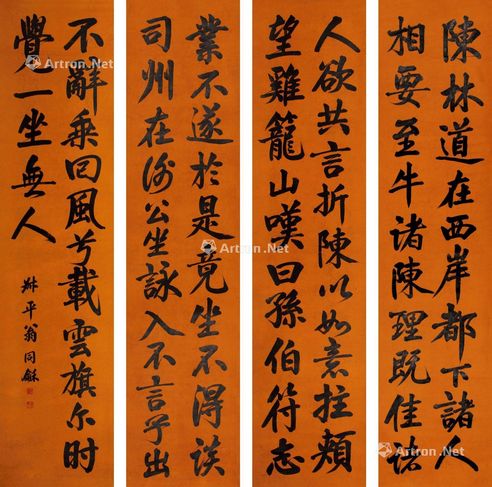 陳林道在西岸都下諸人
相要至牛渚陳理既佳諸
人欲共言折陳以如意拄頰
望雞籠山嘆曰孫伯符志
業不遂於是竟坐不得談
司州在謝公坐詠入不言兮出
不辭乘回風兮載雲旗尔时
覺一坐無人
叔平翁同龢
Artron.Net
Artron.Net
Artron.Net
Artron.Net
Artron.Net